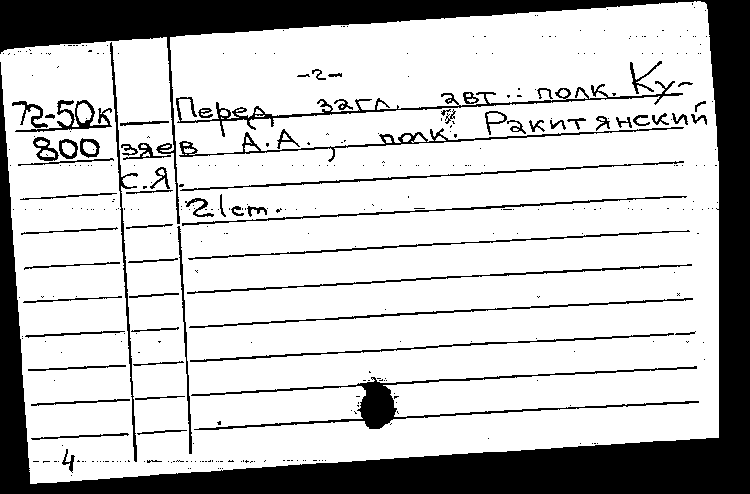 -2-
72-50к Перед загл. авт.: полк. Ку-
800 зяев А.А., полк. Ракитянский
С.Я.
21cm.
4